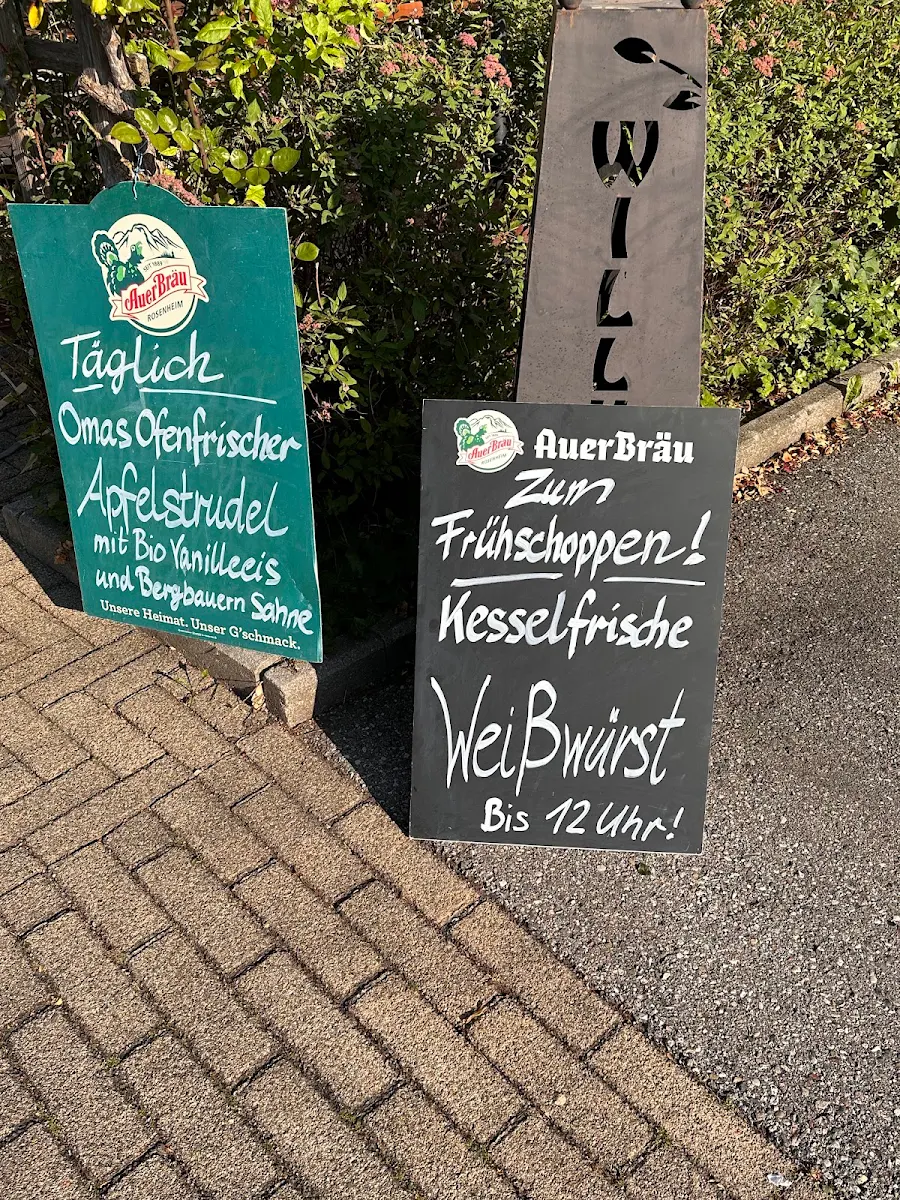 SEIT 1889
AuerBräu
ROSENHEIM
Täglich
Omas Ofenfrischer
Apfelstrudel
mit Bio Vanilleeis
und Bergbauern Sahne
Unsere Heimat. Unser G'schmack.
WILL
AuerBräu
ROSENHEIM
AuerBräu
Zum
Frühschoppen!
Kesselfrische
Weißwürst
Bis 12 Uhr!